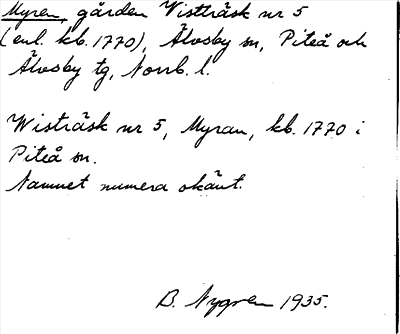 Myren, gården Wistträsk nr 5
(enl. kb. 1770), Älvsby sn, Piteå och
Älvsby tg, Norrb. l.
Wisträsk nr 5, Myran, kb. 1770 i
Piteå sn.
Namnet numera okänt.
B. Nygren 1935.